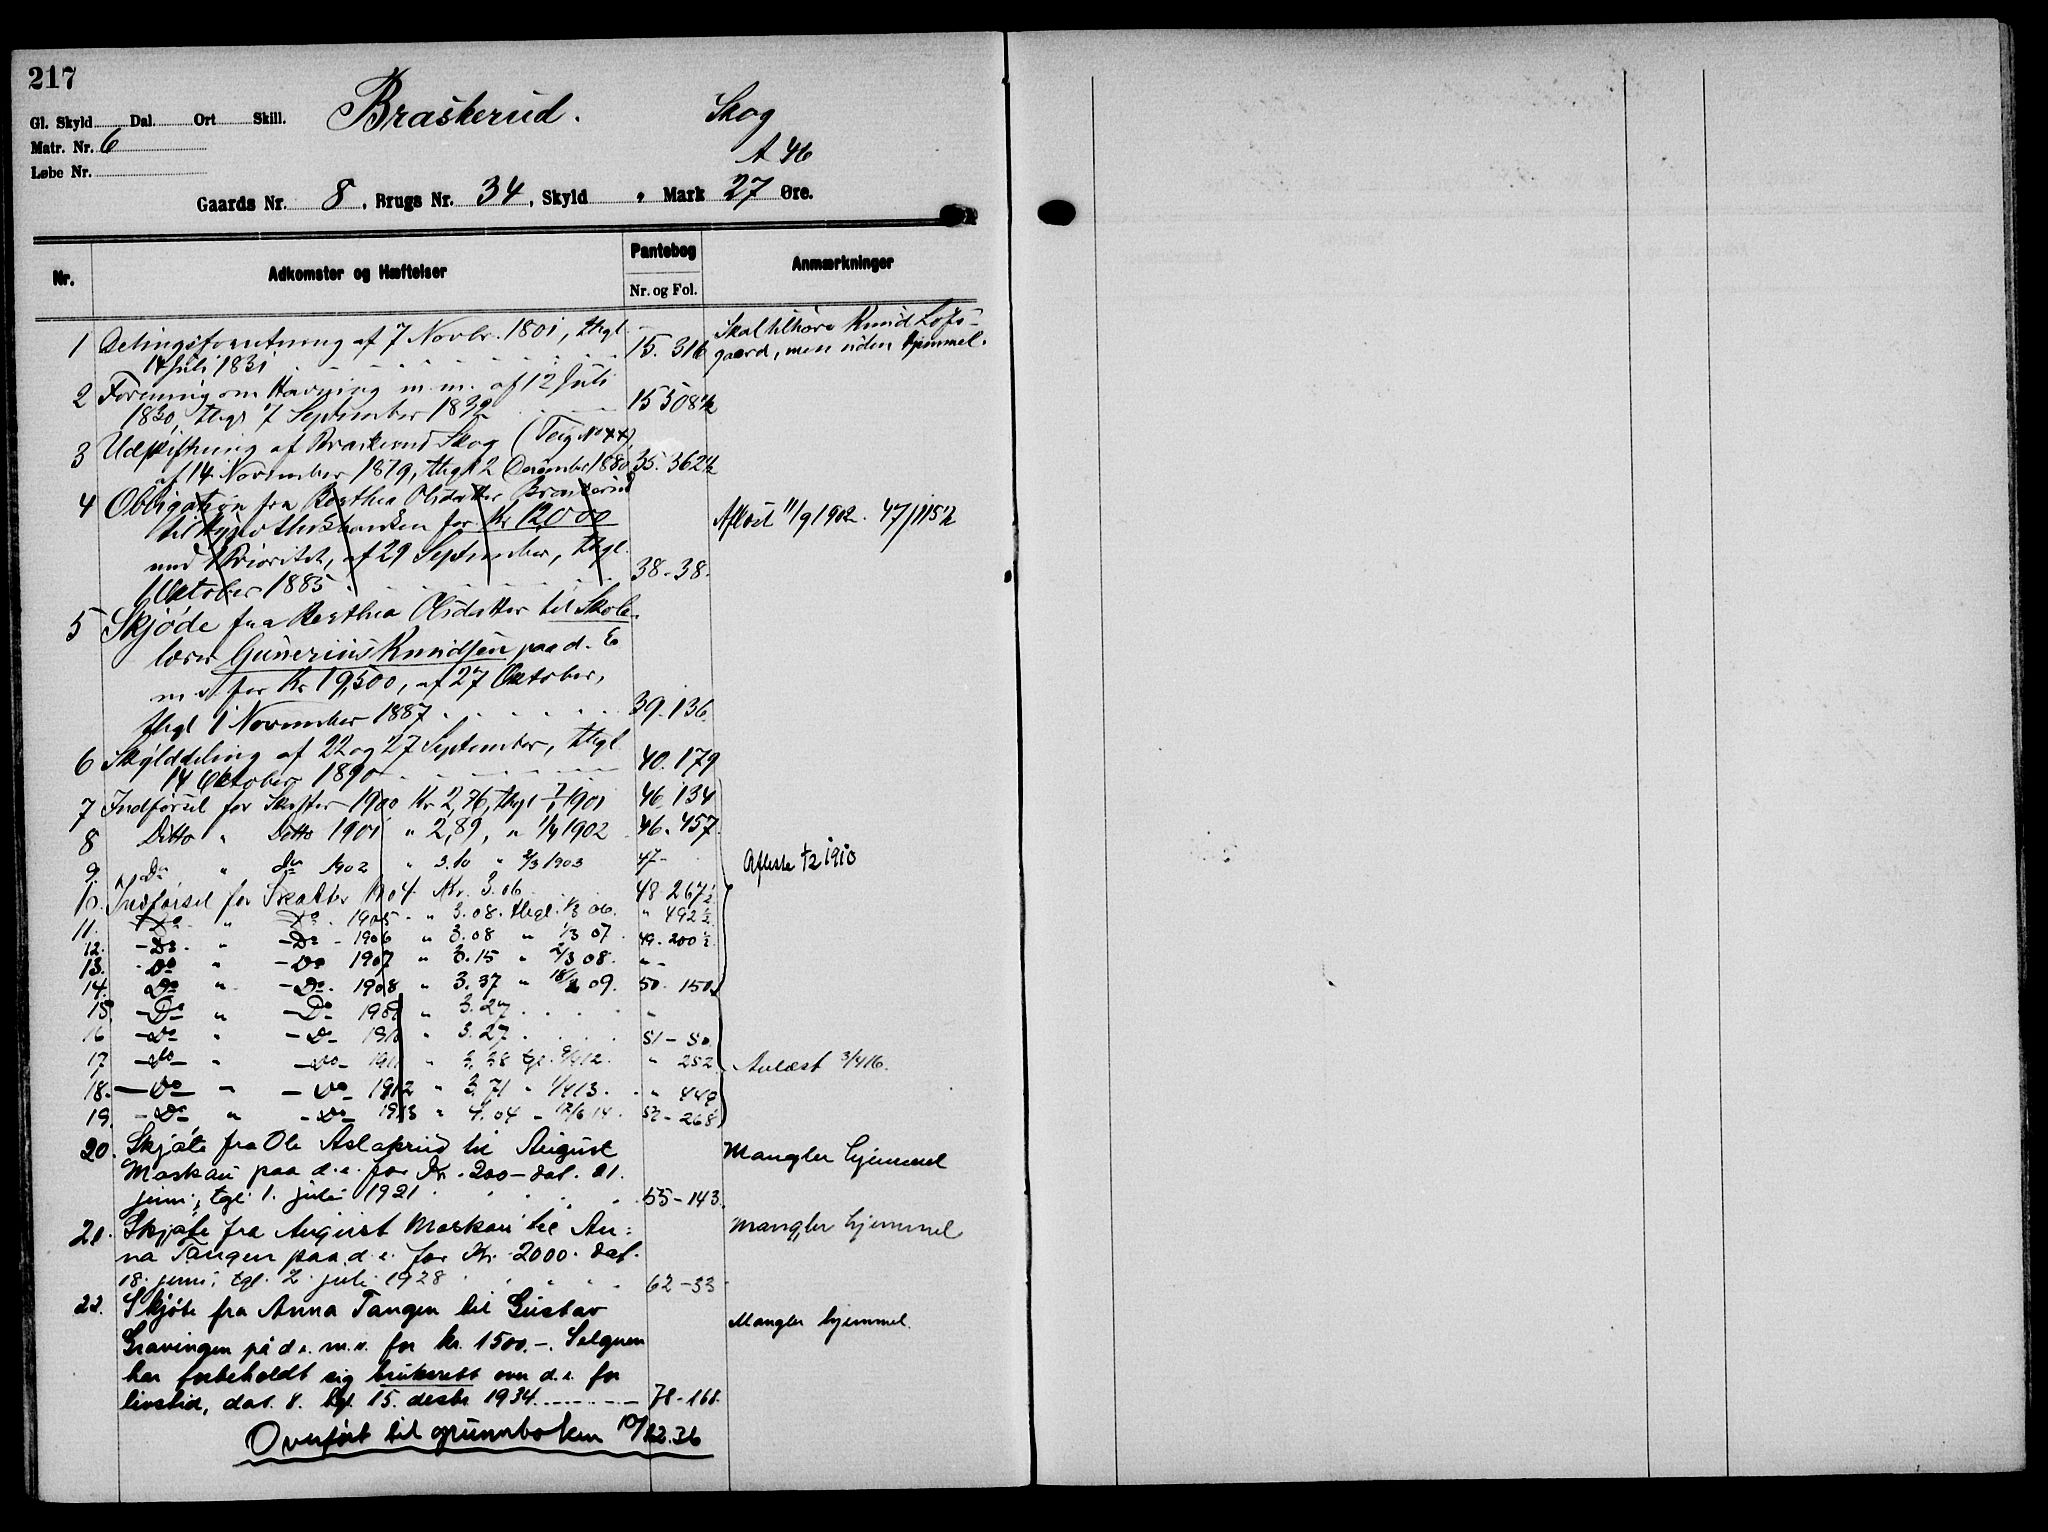 217
Gl. Skyld Dal. Ort Skill. Braskerud. Skog
Matr. Nr. 6 A 46
Løbe Nr.
Gaards Nr. 8, Brugs Nr. 34, Skyld " Mark 27 Øre.
Nr. Adkomster og Hæftelser Pantebog Anmærkninger
Nr. og Fol.
1 Delingsforretning af 7 Novbr. 1801, thgl. Skal tilhøre Knud Lofs-
14 Juli 1831 15. 316 gaard, men uden hjemmel.
2 Forening om Havning m. m. af 12 Juli
1830, thgl 7 September 1832 15 508½
3 Udskiftning af Braskerud Skog (Teig No 44)
af 14 November 1879, thgl 2 December 1880 35. 362½
4 Obligation fra Berthea Olsdatter Braskerud
til Hypothekbanken for Kr 12000 Aflöst 11/9 1902. 47/115½
med 1 Prioritet, af 29 September, thgl.
6 Oktober 1885 38-38.
5 Skjøde fra Berthea Olsdatter til Skole-
lærer Gunerius Knudsen paa d. E
m v for Kr 19,500, af 27 Oktober,
thgl 1 November 1887 39. 136.
6 Skylddeling af 22 og 27 September, thgl
14 Oktober 1890 40. 179
7 Indførsel for Skatter 1900 Kr 2,76, thgl 1901 46. 134
8 Ditto " Ditto 1901 " 2,89, " 1/4 1902 46. 457
9. Do " do 1902 " 3.10 " 2/3 1903 47- Afløste 1/2 1910
10. Indførsel for Skatter 1904 Kr. 3.06 48 267½
11. Do " Do 1905 " 3.08. thgl. 1/3 06. " 492½
12. -Do- " -Do- 1906 " 3.08 " 1/3 07. 49-200½
13. Do " -Do 1907 " 3.15 " 2/3 08. " -
14. Do " -Do- 1908 " 3.37 " 18/2 09. 50-150
15. -Do " -Do 1909 " 3.27 "
16 -Do " -Do- 1910 " 3.27 51-50
17 -do- " -do- 1911 " 3,38 tgl. 9/4 12. " 252 Avlæst 3/4 16.
18. -Do- " -Do 1912 " 3.71 " 1/4 13. " 449
19. -Do " -Do 1913 " 4.04 " 12/6 14. 52-268
20. Skjøte fra Ole Aslakrud til August Mangler hjemmel
Moskau paa d. e. for Kr. 200- dat. 21.
juni, tgl. 1. juli 1921 55-143.
21. Skjøte fra August Moskau til An- Mangler hjemmel
na Tangen paa d. e. for Kr. 2000. dat.
18. juni, tgl. 2. juli 1928 62-33
22. Skjøte fra Anna Tangen til Gustav Mangler hjemmel.
Gravingen på d e. m. v. for kr. 1500.-. Selgeren
har forbeholdt sig bruksrett over d. e. for
livstid, dat. 8. tgl. 15. desbr. 1934. 78-168.
Overført til grunnboken 10/12.36